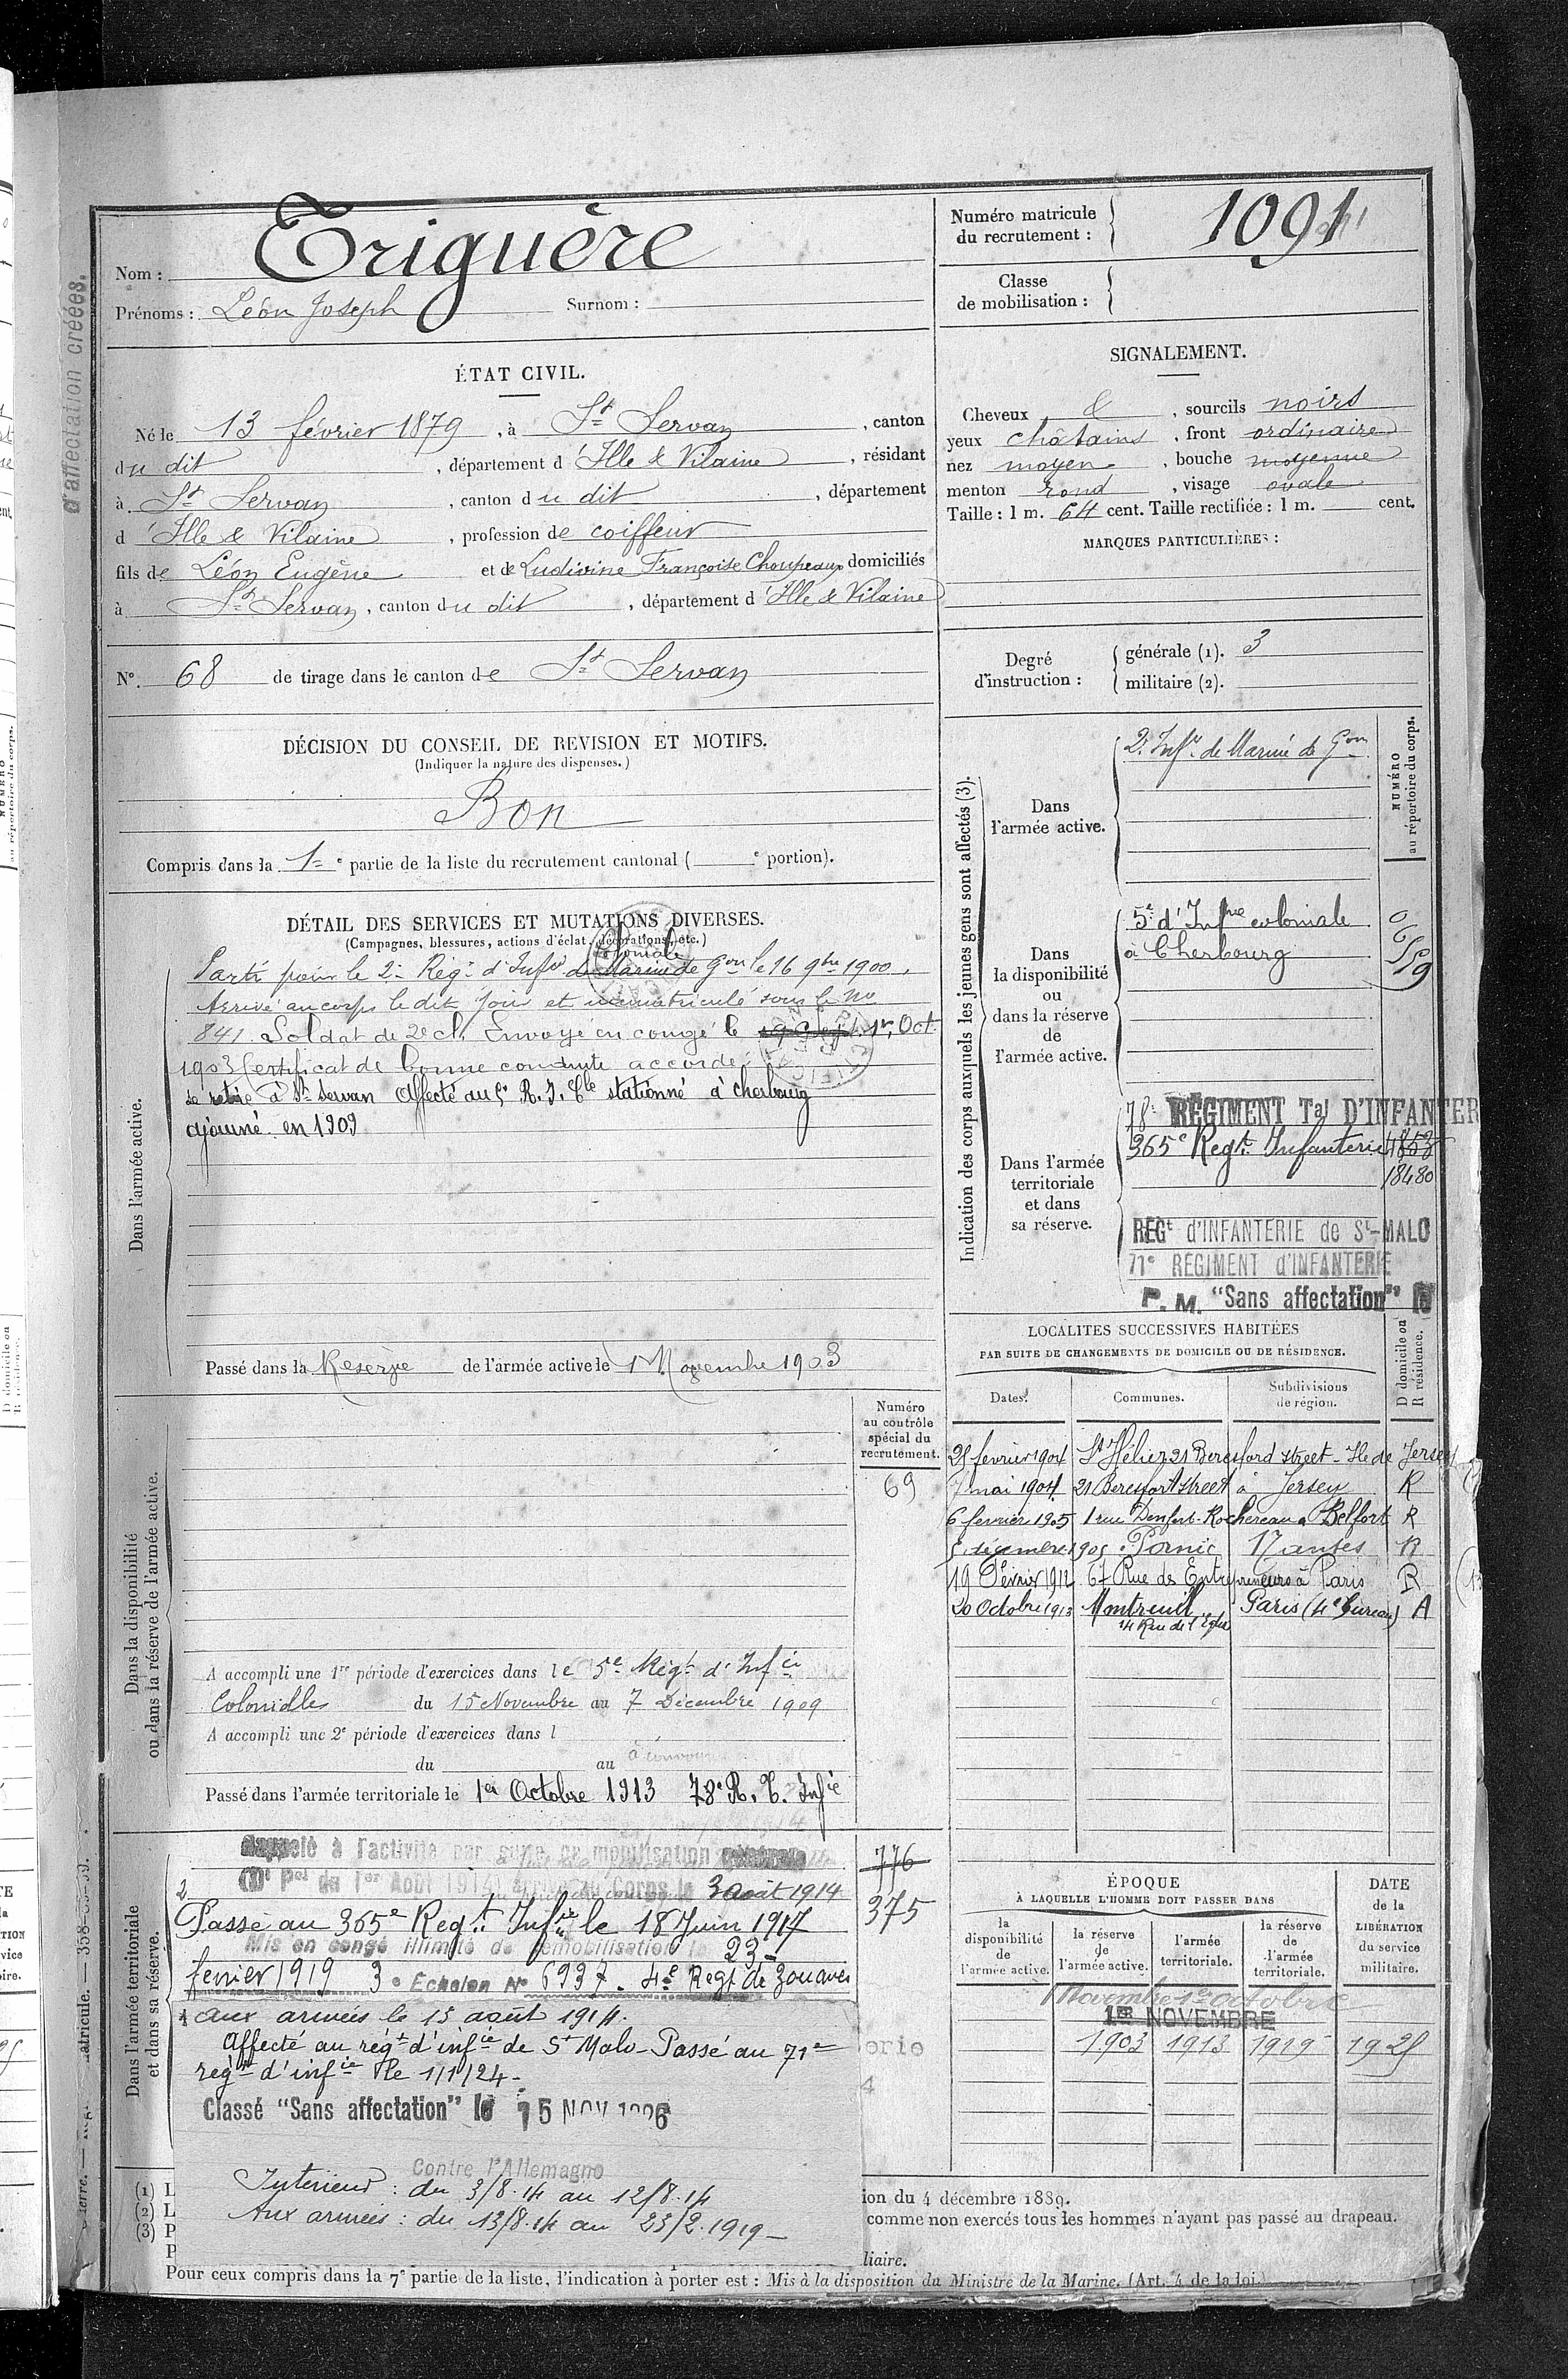 d'affectation créées.
Nom : Triguère
Prénoms : Léon Joseph Surnom :
Numéro matricule du recrutement : 1091
Classe de mobilisation :
ÉTAT CIVIL.
Né le 13 février 1879, à St Servan, canton
du dit, département d'Ille & Vilaine, résidant
à St Servan, canton du dit, département
d'Ille & Vilaine, profession de coiffeur
fils de Léon Eugène et de Ludivine Françoise Choupeaux domiciliés
à St Servan, canton du dit, département d'Ille & Vilaine
SIGNALEMENT.
Cheveux &, sourcils noirs
yeux châtains, front ordinaire
nez moyen, bouche moyenne
menton rond, visage ovale
Taille : 1 m. 64 cent. Taille rectifiée : 1 m. cent.
MARQUES PARTICULIÈRES :
N°. 68 de tirage dans le canton de St Servan
Degré d'instruction : générale (1). 3
militaire (2).
DÉCISION DU CONSEIL DE REVISION ET MOTIFS.
(Indiquer la nature des dispenses.)
Bon
Compris dans la 1e partie de la liste du recrutement cantonal ( e portion).
DÉTAIL DES SERVICES ET MUTATIONS DIVERSES.
(Campagnes, blessures, actions d'éclat, décorations, etc.)
Coloniale
Parti pour le 2e Régt d'Infie de Marine de Gon le 16 9bre 1900.
Arrivé au corps le dit jour et immatriculé sous le No
841. Soldat de 2e cl. Envoyé en congé le 1er Oct.
1903 Certificat de bonne conduite accordé.
Se retire à St Servan Affecté au 5e R. I. Cle stationné à Cherbourg
ajourné en 1909
Dans l'armée active.
Passé dans la Réserve de l'armée active le 1er Novembre 1903
Indication des corps auxquels les jeunes gens sont affectés (3).
NUMÉRO au répertoire du corps.
Dans l'armée active.
2e Infie de Marine de Gon
Dans la disponibilité ou dans la réserve de l'armée active.
5e d'Infrie coloniale
à Cherbourg
Dans l'armée territoriale et dans sa réserve.
78e RÉGIMENT Tal D'INFANTER
365e Régt Infanterie 4853
18480
REGt d'INFANTERIE de St-MALO
71e REGIMENT d'INFANTERIE
P. M. "Sans affectation"
LOCALITES SUCCESSIVES HABITÉES
PAR SUITE DE CHANGEMENTS DE DOMICILE OU DE RÉSIDENCE.
Dates. Communes. Subdivisions de région. D domicile ou R résidence.
février 1904 St Hélier 21 Beresford street - Ile de Jersey
7 mai 1904 21 Beresfort street à Jersey R
6 février 1905 1 rue Denfert-Rochereau à Belfort R
5 décembre 1905 Pornic Nantes R
19 Février 1912 67 Rue des Entrepreneurs à Paris R
20 Octobre 1913 Montreuil Paris (4e bureau) A
Rue de l'Église
Numéro au contrôle spécial du recrutement.
69
Dans la disponibilité ou dans la réserve de l'armée active.
A accompli une 1re période d'exercices dans le 5e Régt d'Infie
Coloniale du 15 Novembre au 7 Décembre 1909
A accompli une 2e période d'exercices dans l
du au
Passé dans l'armée territoriale le 1er Octobre 1913 78e R. T. Infie
Dans l'armée territoriale et dans sa réserve.
Rappelé à l'activité par suite de mobilisation générale
(Dt Pel du 1er Août 1914) arrivé au Corps le 3 août 1914
776
375
Passé au 365e Régt Infie le 18 Juin 1917
Mis en congé illimité de démobilisation le 23
février 1919 3e Echelon No 6937. 4e Régt de Zouaves
aux armées le 13 août 1914.
Affecté au régt d'infie de St Malo - Passé au 71e
régt d'infie le 1/1/24 -
Classé "Sans affectation" le 15 NOV 1926
Contre l'Allemagne
Intérieur : du 3/8.14 au 12/8.14
Aux armées : du 13/8.14 au 23/2.1919 -
ÉPOQUE
À LAQUELLE L'HOMME DOIT PASSER DANS
DATE de la LIBÉRATION du service militaire.
la disponibilité de l'armée active.
la réserve de l'armée active.
l'armée territoriale.
la réserve de l'armée territoriale.
1er Novembre 1er octobre
1ER NOVEMBRE
1903 1913 1919
ion du 4 décembre 1889.
comme non exercés tous les hommes n'ayant pas passé au drapeau.
liaire.
(1) L
(2) L
(3) P
P
Pour ceux compris dans la 7e partie de la liste, l'indication à porter est : Mis à la disposition du Ministre de la Marine. (Art. 4 de la loi.)